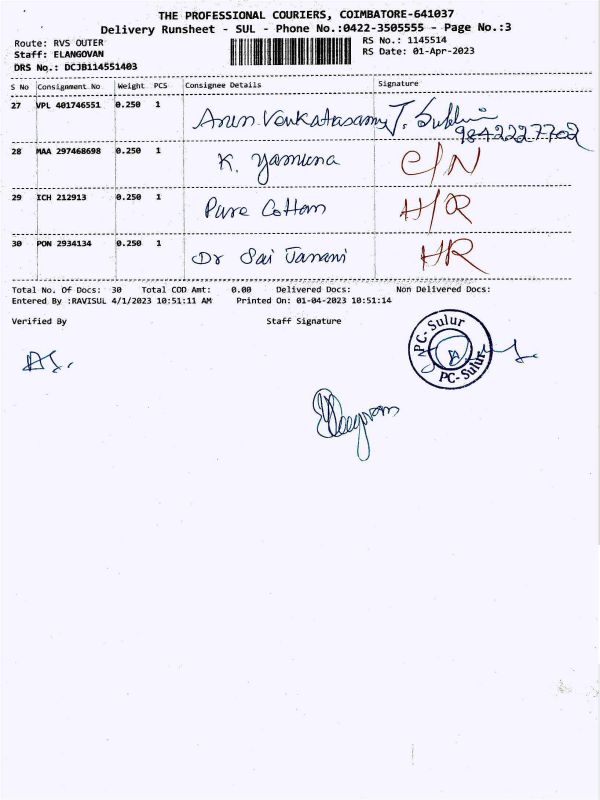 THE PROFESSIONAL COURIERS, COIMBATORE-641037
Delivery Runsheet - SUL - Phone No.:0422-3505555 - Page No.:3
Route: RVS OUTER RS No.: 1145514
Staff: ELANGOVAN RS Date: 01-Apr-2023
DRS No.: DCJB114551403
S No Consignment No Weight PCS Consignee Details Signature
27 VPL 401746551 0.250 1 Arun Venkatasamy J.
9842227702
28 MAA 297468698 0.250 1 K. Yamuna C/N
29 ICH 212913 0.250 1 Pure Cotton H/R
30 PON 2934134 0.250 1 Dr Sai Janani HR
Total No. Of Docs: 30 Total COD Amt: 0.00 Delivered Docs: Non Delivered Docs:
Entered By :RAVISUL 4/1/2023 10:51:11 AM Printed On: 01-04-2023 10:51:14
Verified By Staff Signature
PC-Sulur
PC-Sulur